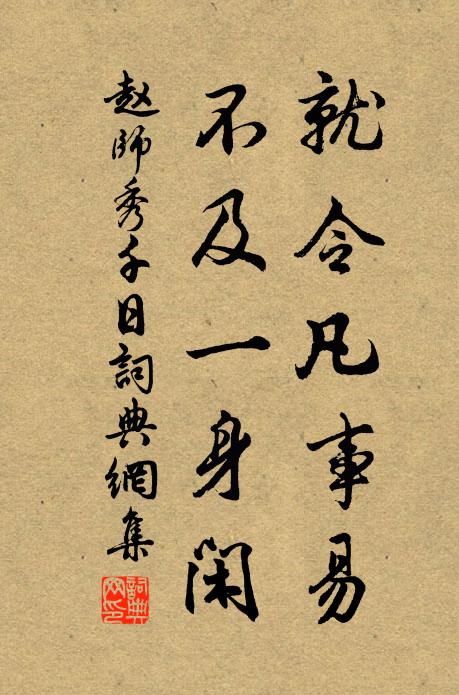 就令凡事易
不及一身閑
赵師秀千日詞典網集
詞典
网印